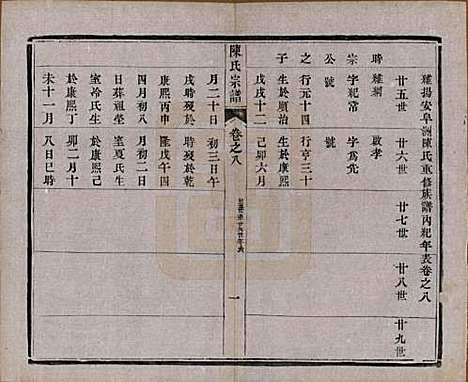 維揚安阜洲陳氏重修族譜內紀年表卷之八
廿五世 廿六世 廿七世 廿八世 廿九世
時
維綱 啟孝
宗 字紀常 字爲先
公 號 號
之 行元十四 行亨三十
子 生於順治 生於康熙
戊戌十二 己卯六月
陳氏宗譜 卷之八 一
月二十日 初三日午
戌時歿於 時歿於乾
康熙丙申 隆戊午四
四月初八 月初八日
日葬祖塋
室冷氏生 室夏氏生
於康熙丁 於康熙己
未十一月 卯二月十
八日巳時